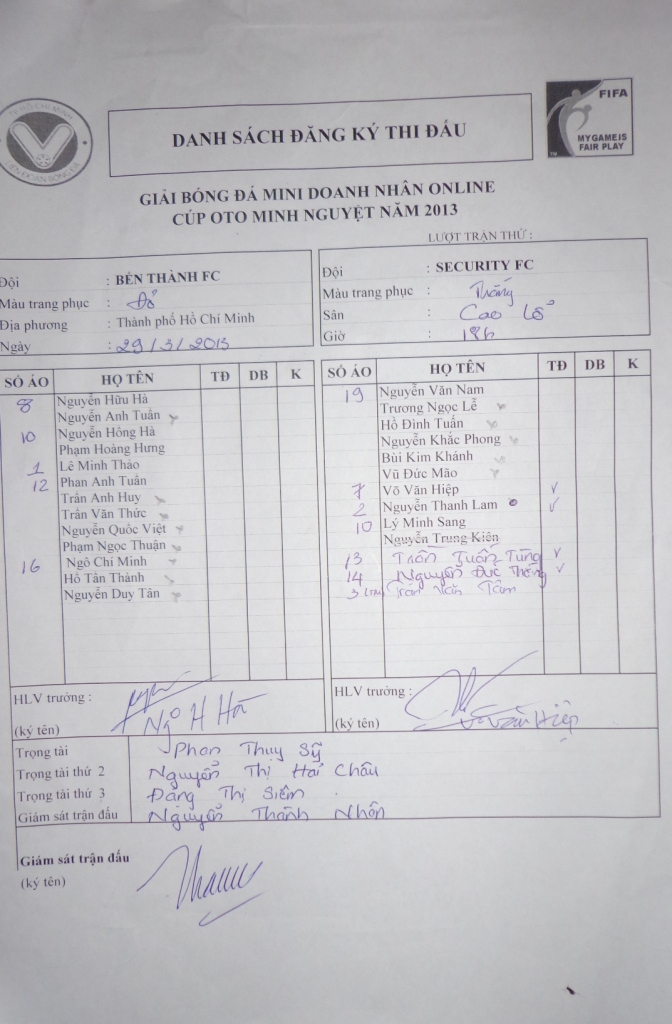 TP HỒ CHÍ MINH
LIÊN ĐOÀN BÓNG ĐÁ
FIFA
MY GAME IS
FAIR PLAY
TM
DANH SÁCH ĐĂNG KÝ THI ĐẤU
GIẢI BÓNG ĐÁ MINI DOANH NHÂN ONLINE
CÚP OTO MINH NGUYỆT NĂM 2013
LƯỢT TRẬN THỨ :
Đội : BẾN THÀNH FC
Màu trang phục : Đỏ
Địa phương : Thành phố Hồ Chí Minh
Ngày : 29/3/2013
Đội : SECURITY FC
Màu trang phục : Trắng
Sân : Cao Lỗ
Giờ : 18h
SỐ ÁO HỌ TÊN TĐ DB K
8 Nguyễn Hữu Hà
Nguyễn Anh Tuấn
10 Nguyễn Hồng Hà
Phạm Hoàng Hưng
1 Lê Minh Thảo
12 Phan Anh Tuấn
Trần Anh Huy
Trần Văn Thức
Nguyễn Quốc Việt
Phạm Ngọc Thuận
16 Ngô Chí Minh
Hồ Tấn Thành
Nguyễn Duy Tân
SỐ ÁO HỌ TÊN TĐ DB K
19 Nguyễn Văn Nam
Trương Ngọc Lễ
Hồ Đình Tuấn
Nguyễn Khắc Phong
Bùi Kim Khánh
Vũ Đức Mão
7 Võ Văn Hiệp ✓
2 Nguyễn Thanh Lam ✓
10 Lý Minh Sang
Nguyễn Trung Kiên
13 Trần Tuấn Tùng ✓
14 Nguyễn Đức Thắng ✓
3 (TM) Trần Văn Tâm
HLV trưởng :
(ký tên) Ngô H Hà
HLV trưởng :
(ký tên) Võ Văn Hiệp
Trọng tài Phan Thụy Sỹ
Trọng tài thứ 2 Nguyễn Thị Hải Châu
Trọng tài thứ 3 Đặng Thị Siêm
Giám sát trận đấu Nguyễn Thành Nhơn
Giám sát trận đấu
(ký tên)